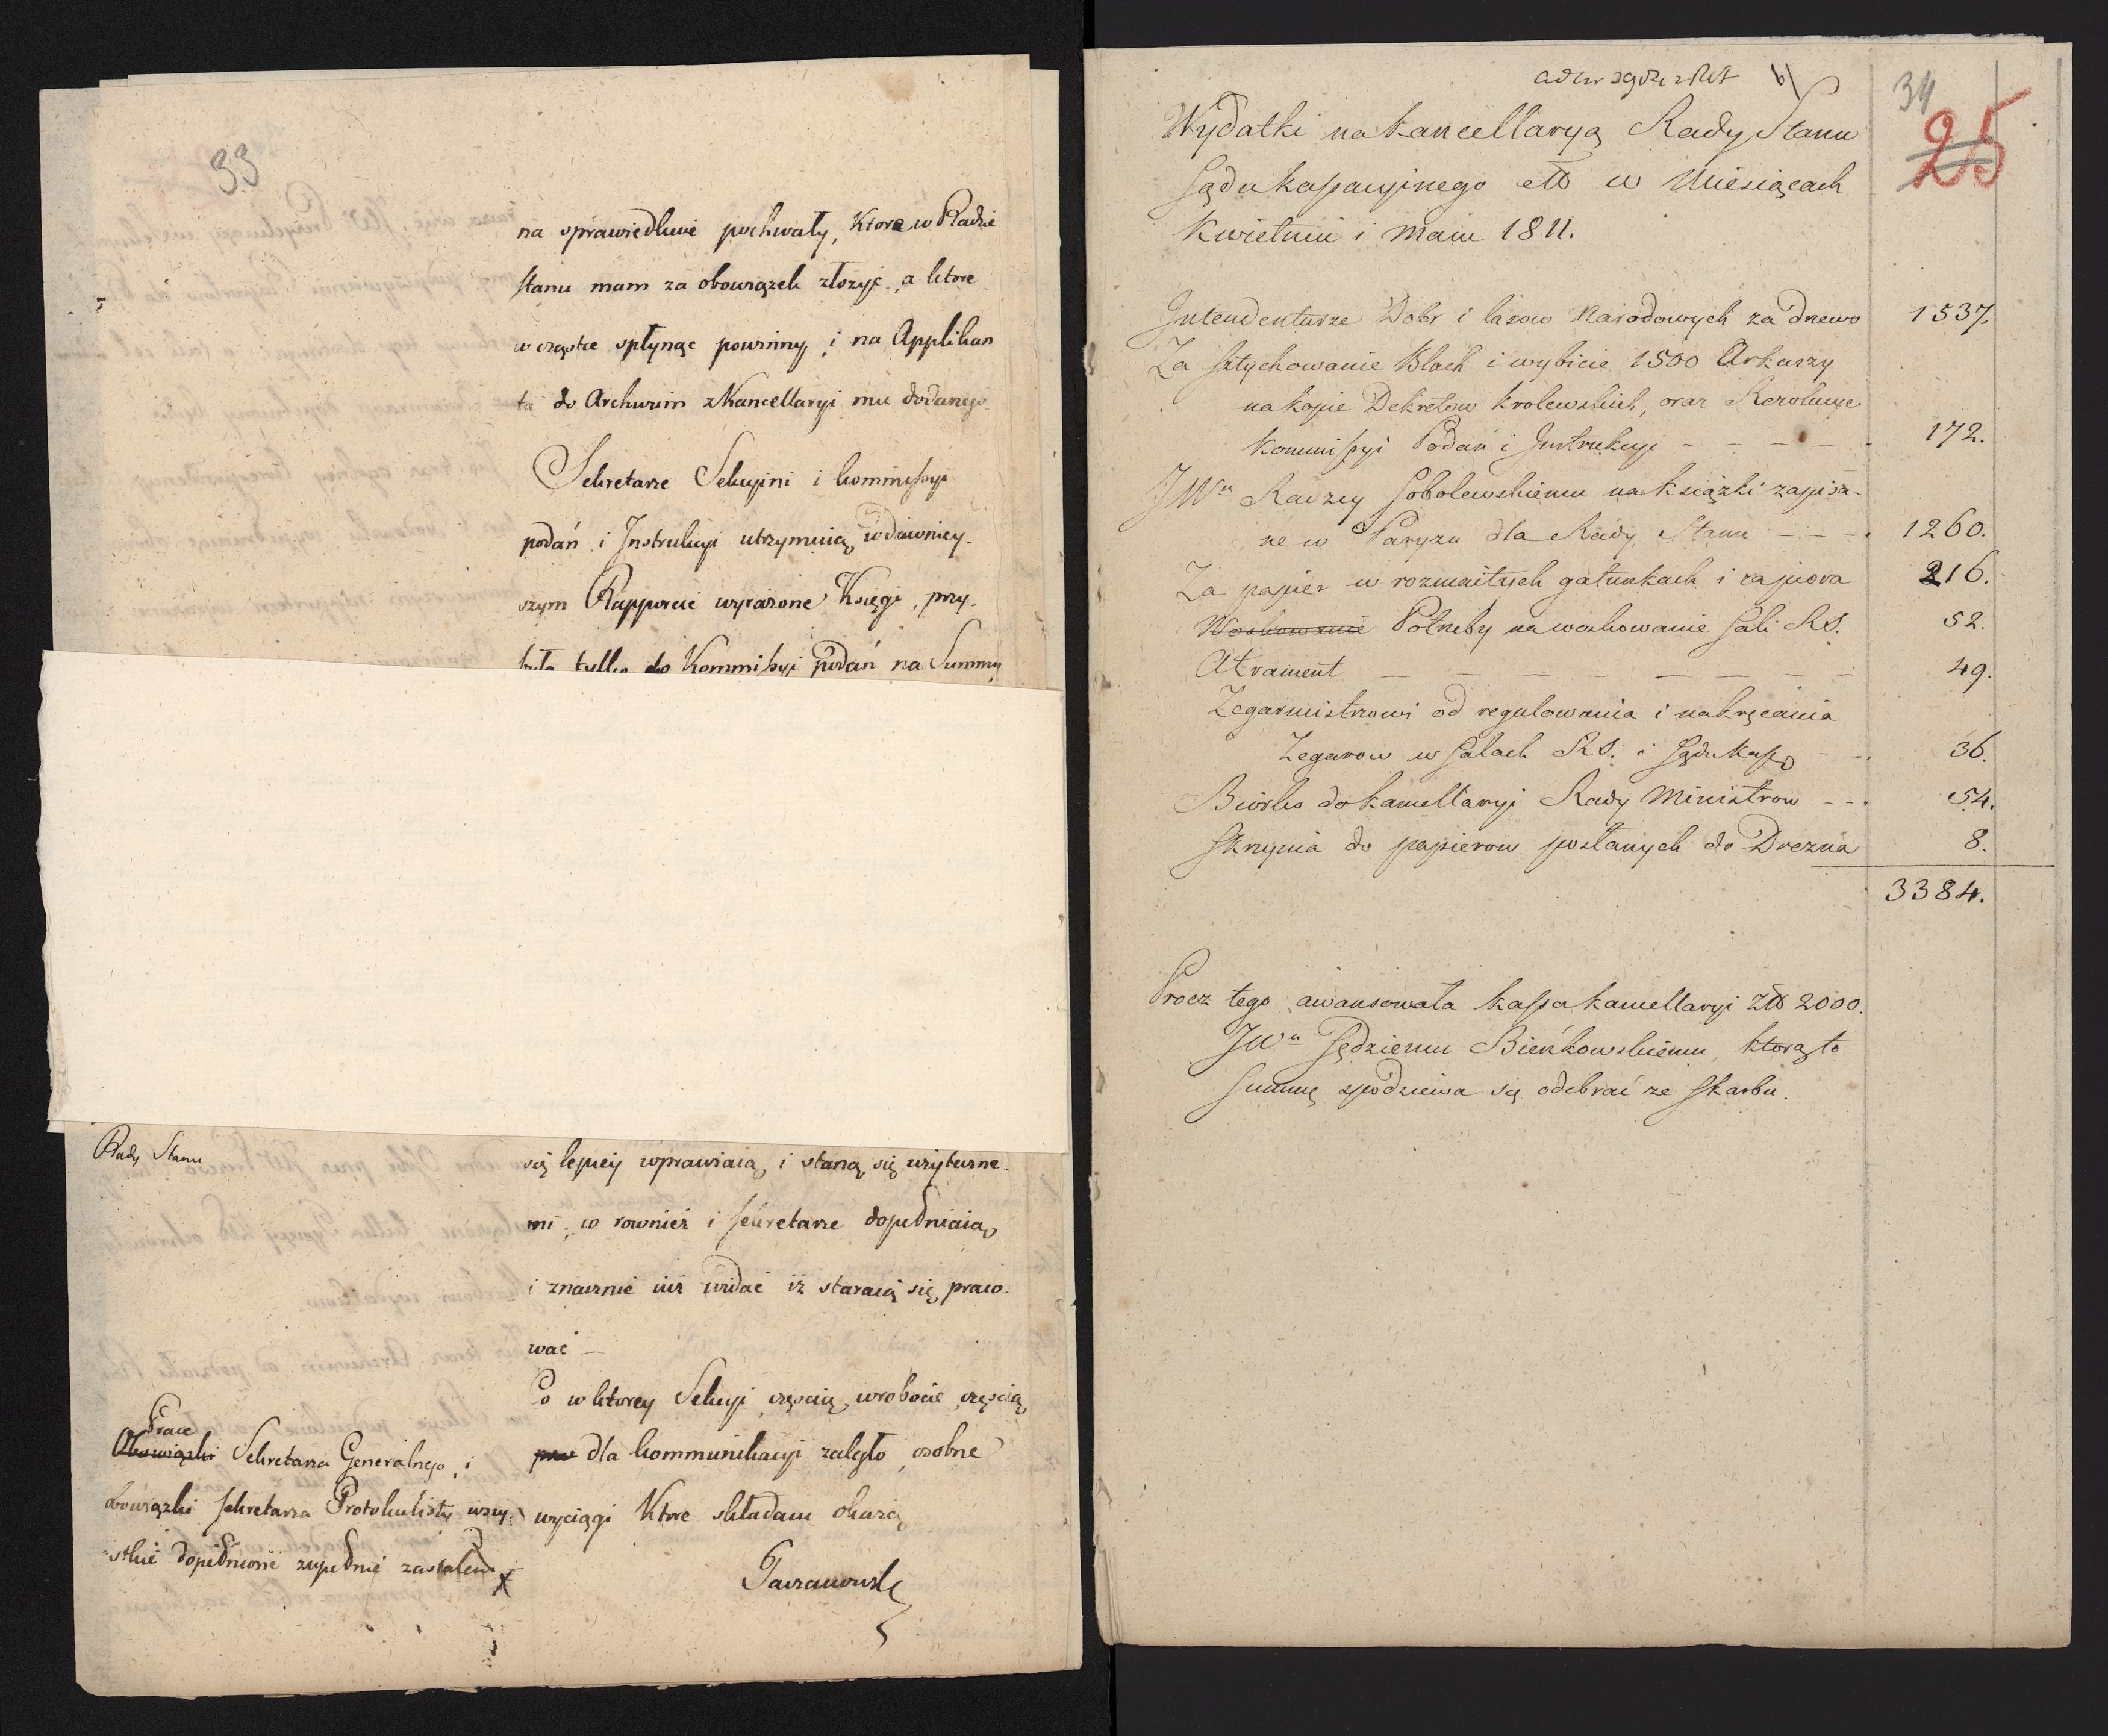 33
na sprawiedliwie pochwały, Ktore w Radzie
stanu mam za obowiązek złozyć, a ktore
w cząstce spłynąc powinny, i na Applikan
ta do Archiwum z Kancellaryi mu dodanego
Sekretarze Sekcyini i kommissyi
podań i Instrukcyi utrzymuią w dawniey
szym Rapporcie wyrażone Księgi, przy-
była tylko do Kommissyi podań na Summy
Rady Stanu
się lepiey wprawiaią, i staną się użyteczne-
mi, w rownież i sekretarze dopełniaią,
i znacznie iuż widać iż staraią się praco-
wać —
Co w ktorey Sekcyi częscią w robocie, częscią
dla kommunikacyi zaległo, osobne
wyciągi Ktore składam okażą
Prace
Obowiązki Sekretarza Generalnego, i
obowiązki sekretarza Protokulisty wszy-
stkie dopełnione zupełnie zastałem
34
25
Wydatki na kancellaryą Rady Stanu
Sądu kassacyjnego etc w Miesiącach
Kwietniu i Maiu 1811.
Intendenturze Dobr i lasow Narodowych za drzewo 1537.
Za sztychowanie Blach i wybicie 1500 Arkuszy
na kopie Dekretow krolewskich, oraz Rezolucye
kommissyi Podań i Instrukcyi - - - - - 172.
JWu Radzcy Sobolewskiemu na książki zapisa-
ne w Paryzu dla Rady Stanu - - - 1260.
Za papier w rozmaitych gatunkach i za piora 216.
Woskowanie Potrzeby na woskowanie sali RS. 52.
Atrament — — — — — — — — 49.
Zegarmistrzowi od regulowania i nakręcania
Zegarow w salach RS. i Sądu Kass. - - 36.
Biorko do kancellaryi Rady Ministrow - - 54.
Skrzynia do papierow posłanych do Drezna 8.
3384.
Procz tego awansowała kassa kancellaryi zł 2000.
JWu Sędziemu Bieńkowskiemu, ktorą to
summę spodziewa się odebrać ze skarbu.